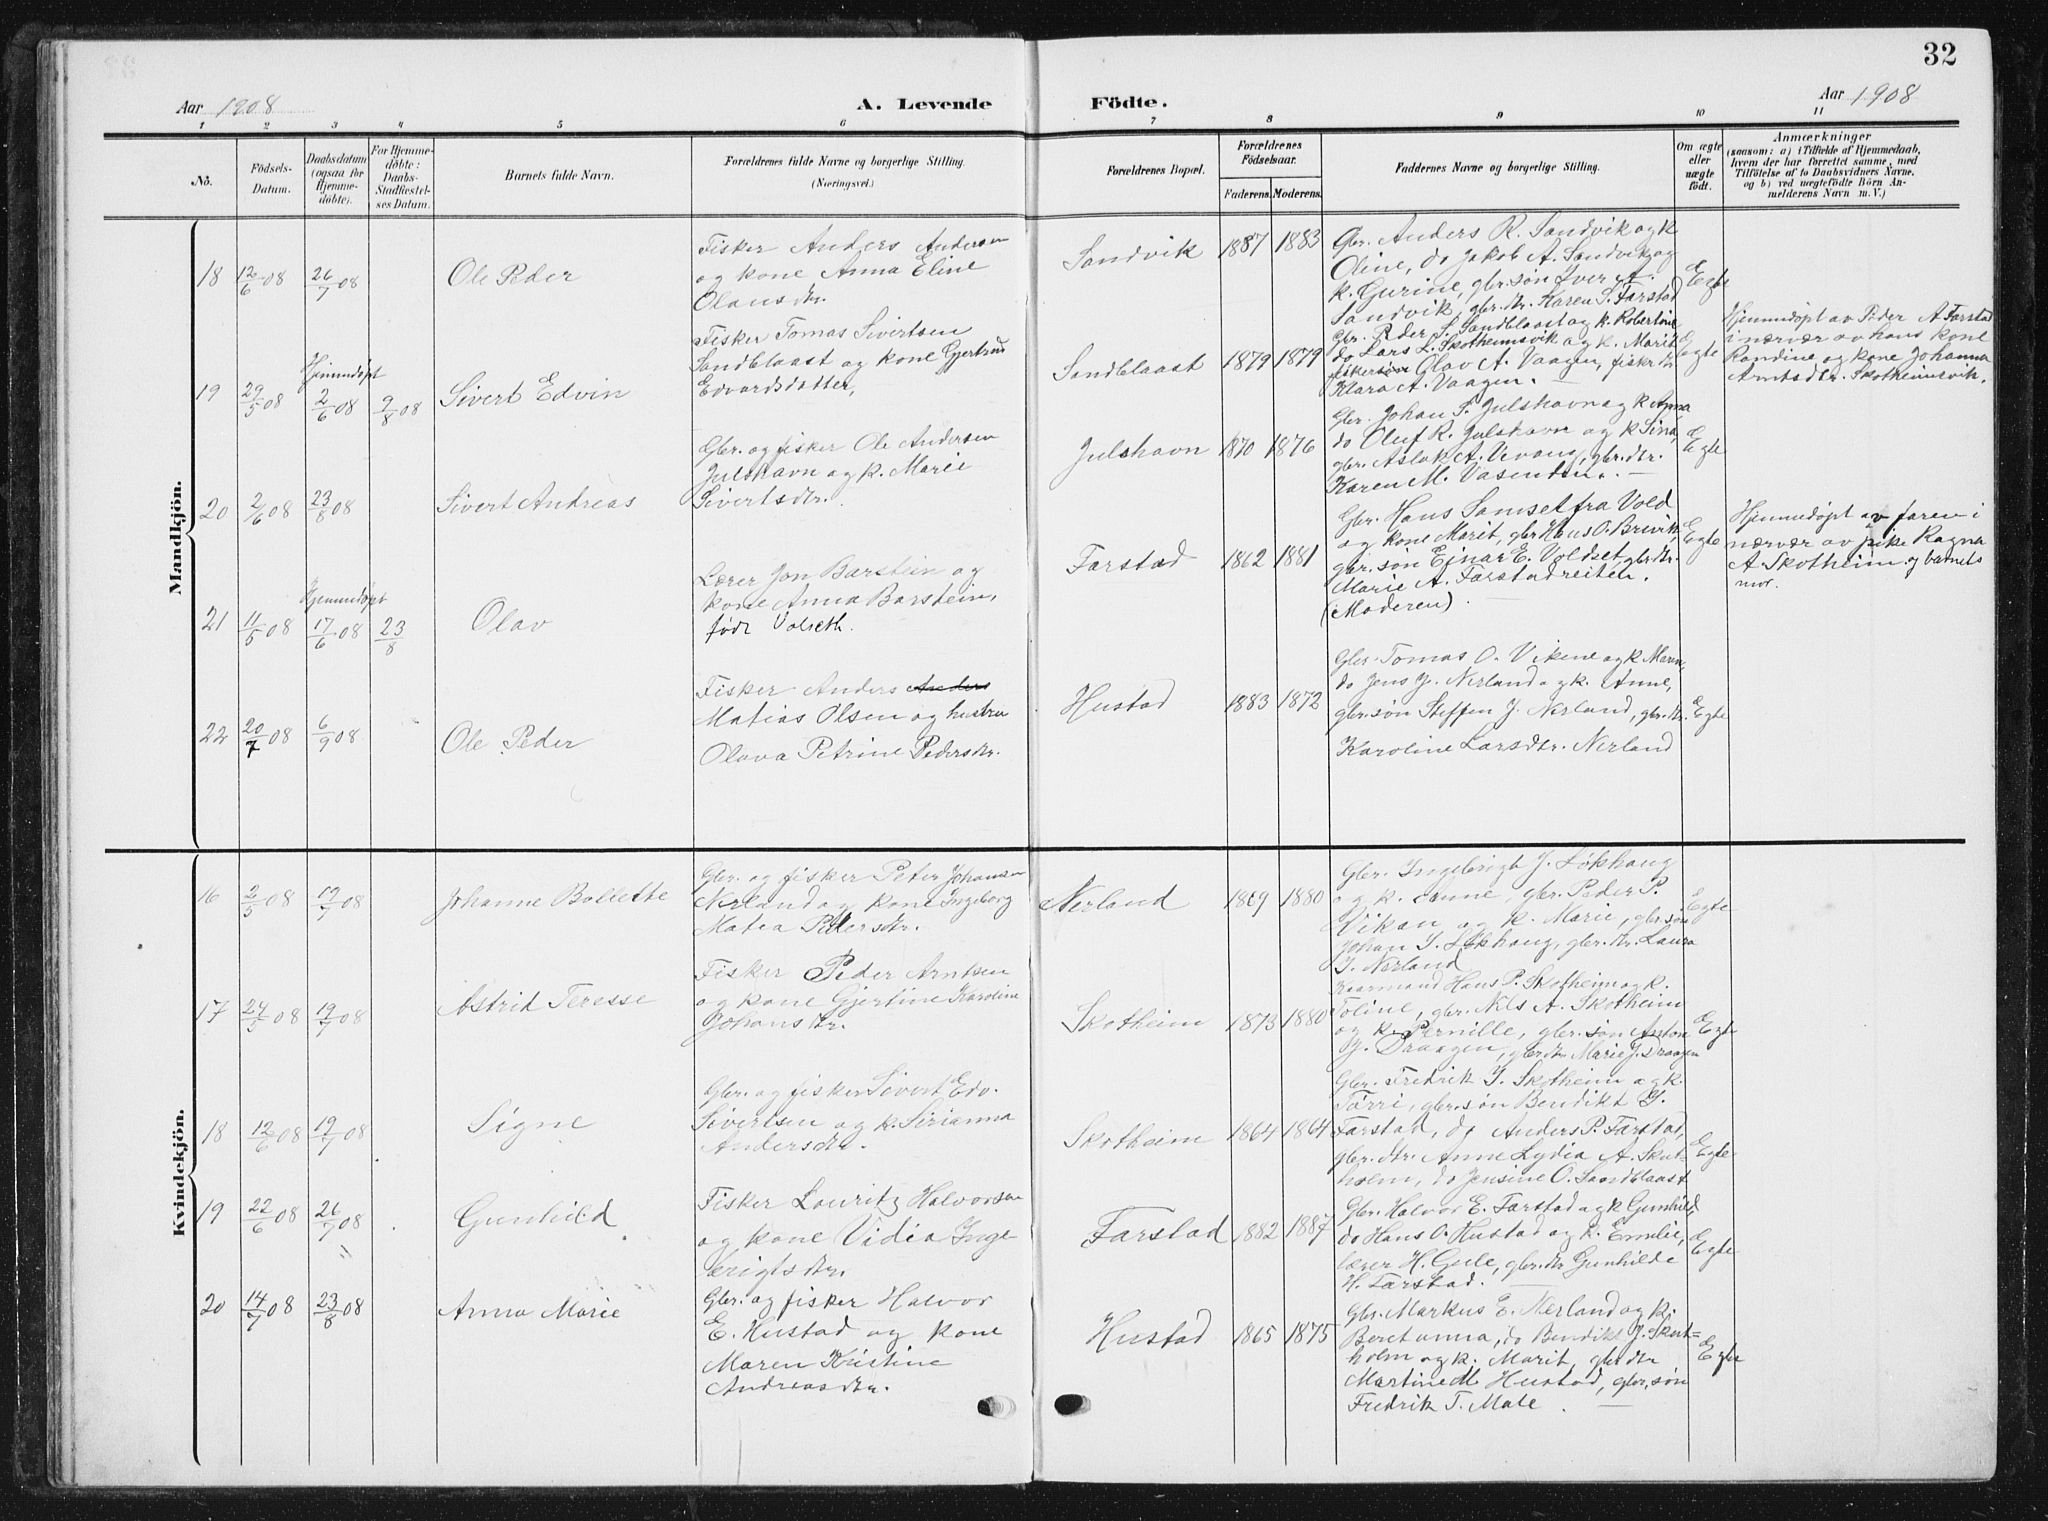 32
Aar 1908
A. Levende Födte.
Aar 1908
1 2 3 4 5 6 7 8 9 10 11
No.
Födsels-
Datum.
Daabsdatum
(ogsaa for
Hjemme-
döbte).
For Hjemme-
döbte:
Daabs-
Stadfæstel-
ses Datum.
Barnets fulde Navn.
Forældrenes fulde Navne og borgerlige Stilling.
(Næringsvei.)
Forældrenes Bopæl.
Forældrenes
Födselsaar.
Faderens. Moderens.
Faddernes Navne og borgerlige Stilling.
Om ægte
eller
uægte
født.
Anmærkninger
(saasom: a) i Tilfælde af Hjemmedaab,
hvem der har forrettet samme, med
Tilföielse af to Daabsvidners Navne,
og b) ved uægtefödte Börn An-
melderens Navn m. V.)
Mandkjön.
18 12/6 08 26/7 08 Ole Peder
Fisker Anders Andersen
og kone Anna Eline
Olausdtr.
Sandvik 1887 1883
Gbr. Anders R. Sandvik og k
Oline, do Jakob A. Sandvik og
k. Gurine, gbr. søn Iver A.
Sandvik, gbr. dtr. Karen S. Farstad
Egte
19 29/5 08 Hjemmedøpt 2/6 08 9/8 08 Sivert Edvin
Fisker Tomas Sivertsen
Sandblaast og kone Gjertrud
Edvardsdatter,
Sandblaast 1879 1879
Gbr. Peder S. Sandblaast og k. Robertine
do Lars L. Skotheimsvik og k. Marit
fiskersøn Olav A. Vaagen, fisker dtr
Klara A. Vaagen.
Egte
Hjemmedøpt av Peder A Farstad
i nærvær av hans kone
Randine og kone Johanna
Arntsdtr. Skotheimsvik.
20 2/6 08 23/8 08 Sivert Andreas
Gbr. og fisker Ole Andersen
Julshavn og k. Marie
Sivertsdtr.
Julshavn 1870 1876
Gbr. Johan S. Julshavn og k Anna
do Oluf R. Julshavn og k Sina,
gbr. Aslak A. Vevang, gbr. dtr.
Karen M. Vasenden.
Egte
21 11/5 08 Hjemmedøpt 17/6 08 23/8 Olav
Lærer Jon Barstein og
kone Anna Barstein,
født Volseth.
Farstad 1862 1881
Gbr. Hans Samset fra Vold
og kone Marit, gbr Hans O. Brevik,
gbr. søn Ejnar E. Voldset, gbr. dtr.
Marie A. Farstadreiten.
(Moderen)
Egte
Hjemmedøpt av faren i
nærvær av pike Ragna
A. Skotheim og barnets
mor.
22 20/7 08 6/9 08 Ole Peder
Fisker Anders Anders
Matias Olsen og hustru
Olava Petrine Pedersdtr.
Hustad 1883 1872
Gbr. Tomas O. Vikene og k Maren,
do Jens J. Nerland og k. Anne,
gbr. søn Steffen J. Nerland, gbr. dtr.
Karoline Larsdtr. Nerland
Egte
Kvindekjön.
16 2/5 08 19/7 08 Johanne Bollette
Gbr. og fisker Peter Johansen
Nerland og kone Ingeborg
Matea Pedersdtr.
Nerland 1869 1880
Gbr. Ingebrigt J. Løkhaug
og k. Janne, gbr. Peder P.
Vikan og k. Marie, gbr. søn
Johan I. Løkhaug, gbr. dtr. Laura
J. Nerland
Egte
17 24/5 08 19/7 08 Astrid Teresse
Fisker Peder Arntsen
og kone Gjertine Karoline
Johansdtr.
Skotheim 1873 1880
Kaarmand Hans P. Skotheim og k.
Toline, gbr. Nels A. Skotheim
og k. Pernille, gbr. søn Anton
J. Draagen, gbr. dtr Marie J. Draagen
Egte
18 12/6 08 19/7 08 Signe
Gbr. og fisker Sivert Edv.
Sivertsen og k. Sirianna
Andersdtr.
Skotheim 1864 1864
Gbr. Fredrik I. Skotheim og k.
Tørri, gbr. søn Bendikt G.
Farstad, do Anders P. Farstad,
gbr. dtr. Anne Lydia A. Skot-
holm, do Jensine O. Sandblaast
Egte
19 22/6 08 26/7 08 Gunhild
Fisker Louritz Halvorsen
og kone Vidia Inge-
brigtsdtr.
Farstad 1882 1887
Gbr. Halvor E. Farstad og k Gunhild,
do Hans O. Hustad og k. Emilie,
lærer H. Gule, gbr. dtr Gunhilde
H. Farstad.
Egte
20 14/7 08 23/8 08 Anna Marie
Gbr. og fisker Halvor
E. Hustad og kone
Maren Kristine
Andreasdtr.
Hustad 1865 1875
Gbr. Markus E. Nerland og k.
Beret anna, do Bendikt J. Skot-
holm og k. Marit, gbr dtr
Martine M Hustad, gbr. søn
Fredrik T. Male.
Egte